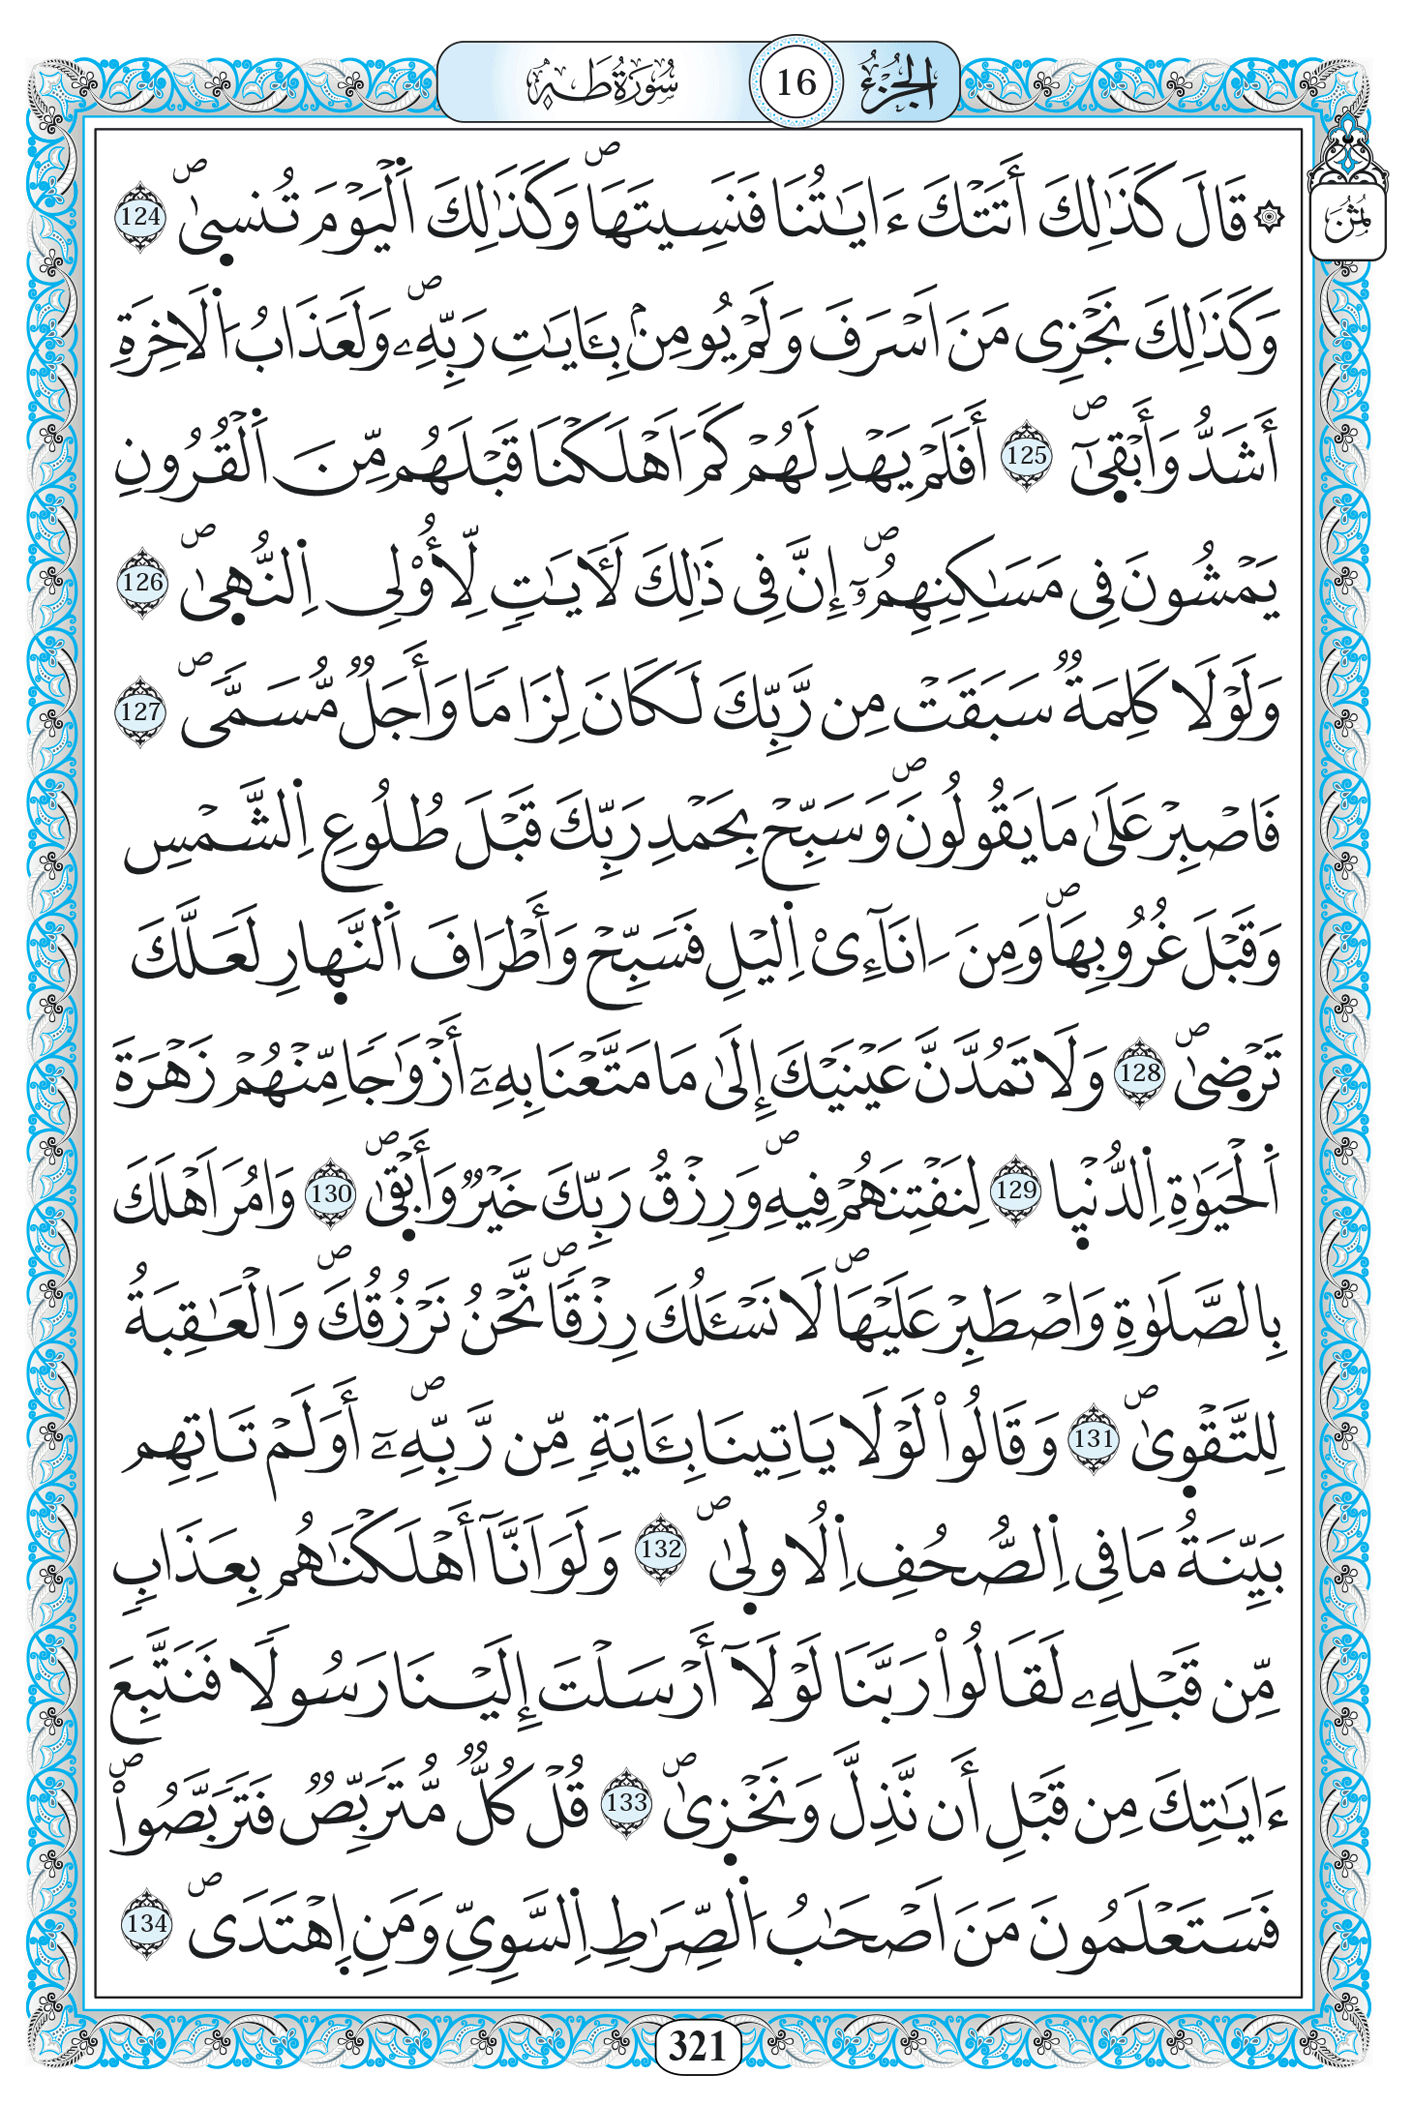 الجزء 16 سورة طه
ثمن
۞ قَالَ كَذَٰلِكَ أَتَتْكَ ءَايَٰتُنَا فَنَسِيتَهَاۖ وَكَذَٰلِكَ اَ۬لْيَوْمَ تُنسۭيٰۖ 124
وَكَذَٰلِكَ نَجْزِي مَنَ اَسْرَفَ وَلَمْ يُومِنۢ بِـَٔايَٰتِ رَبِّهِۦۖ وَلَعَذَابُ اُ۬لَاخِرَةِ
أَشَدُّ وَأَبْقۭيٰٓۖ 125 أَفَلَمْ يَهْدِ لَهُمْ كَمَ اَهْلَكْنَا قَبْلَهُم مِّنَ اَ۬لْقُرُونِ
يَمْشُونَ فِي مَسَٰكِنِهِمُۥٓۖ إِنَّ فِي ذَٰلِكَ لَأٓيَٰتٖ لِّأُوْلِي اِ۬لنُّهۭيٰۖ 126
وَلَوْلَا كَلِمَةٞ سَبَقَتْ مِن رَّبِّكَ لَكَانَ لِزَاماٗ وَأَجَلٞ مُّسَمّيٗۖ 127
فَاصْبِرْ عَلَىٰ مَا يَقُولُونَۖ وَسَبِّحْ بِحَمْدِ رَبِّكَ قَبْلَ طُلُوعِ اِ۬لشَّمْسِ
وَقَبْلَ غُرُوبِهَاۖ وَمِنَ اٰنَآءِےْ اِ۬ليْلِ فَسَبِّحْ وَأَطْرَافَ اَ۬لنَّهۭارِ لَعَلَّكَ
تَرْضۭيٰۖ 128 وَلَا تَمُدَّنَّ عَيْنَيْكَ إِلَىٰ مَا مَتَّعْنَا بِهِۦٓ أَزْوَٰجاٗ مِّنْهُمْ زَهْرَةَ
اَ۬لْحَيَوٰةِ اِ۬لدُّنْيۭا 129 لِنَفْتِنَهُمْ فِيهِۖ وَرِزْقُ رَبِّكَ خَيْرٞ وَأَبْقۭيٰۖ 130 وَامُرَ اَهْلَكَ
بِالصَّلَوٰةِ وَاصْطَبِرْ عَلَيْهَاۖ لَا نَسْـَٔلُكَ رِزْقاٗۖ نَّحْنُ نَرْزُقُكَۖ وَالْعَٰقِبَةُ
لِلتَّقْوۭيٰۖ 131 وَقَالُواْ لَوْلَا يَاتِينَا بِـَٔايَةٖ مِّن رَّبِّهِۦٓۖ أَوَلَمْ تَاتِهِم
بَيِّنَةُ مَا فِي اِ۬لصُّحُفِ اِ۬لُاولۭيٰۖ 132 وَلَوَ اَنَّآ أَهْلَكْنَٰهُم بِعَذَابٖ
مِّن قَبْلِهِۦ لَقَالُواْ رَبَّنَا لَوْلَآ أَرْسَلْتَ إِلَيْنَا رَسُولاٗ فَنَتَّبِعَ
ءَايَٰتِكَ مِن قَبْلِ أَن نَّذِلَّ وَنَخْزۭيٰۖ 133 قُلْ كُلّٞ مُّتَرَبِّصٞ فَتَرَبَّصُواْۖ
فَسَتَعْلَمُونَ مَنَ اَصْحَٰبُ اُ۬لصِّرَٰطِ اِ۬لسَّوِيِّ وَمَنِ اِ۪هْتَدَيٰۖ 134
321